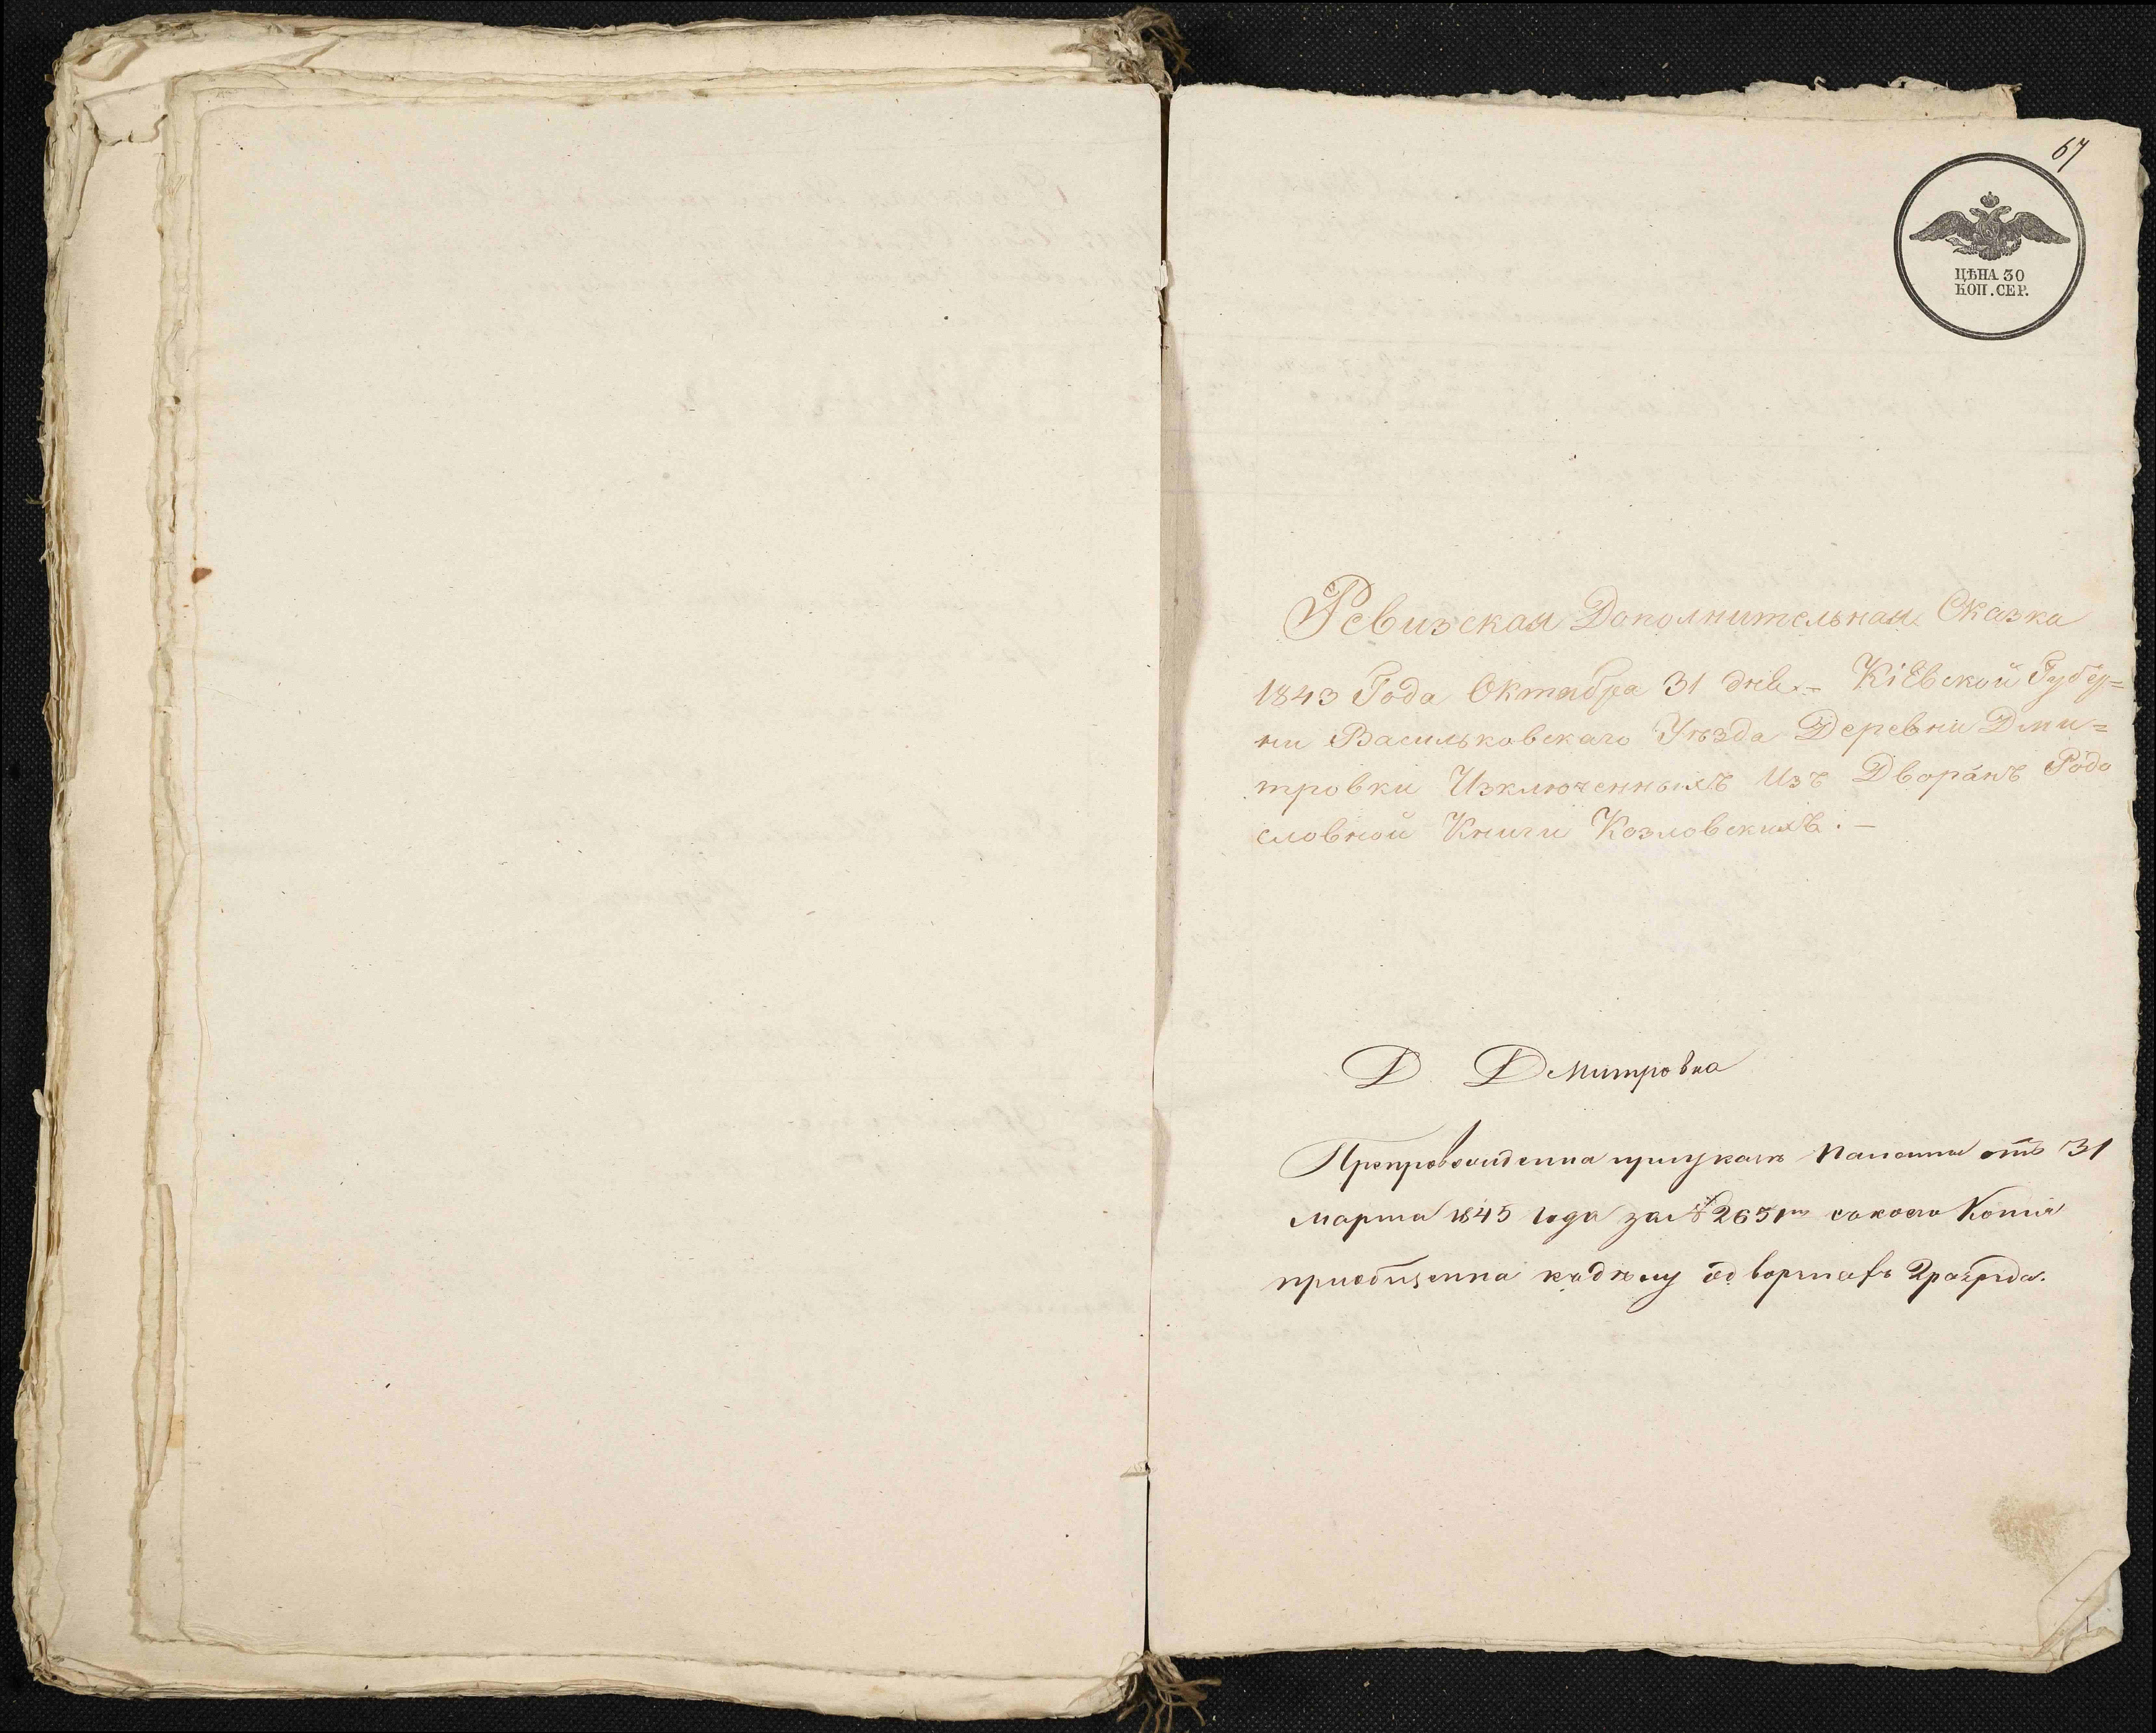 67
ЦѢНА 30
КОП. СЕР.
Ревизская Дополнительная Сказка
1843 Года Октября 31 дня.– Кіевской Губер=
ни Васильковскаго Уѣзда Деревни Дми=
тровки Изключенныхъ Изъ Дворянъ Родо
словной Книги Козловскихъ.–
Д Дмитровка
Препровождена при указѣ Палаты отъ 31
марта 1845 года за № 2651 с коего Копія
приобщена къ дѣлу